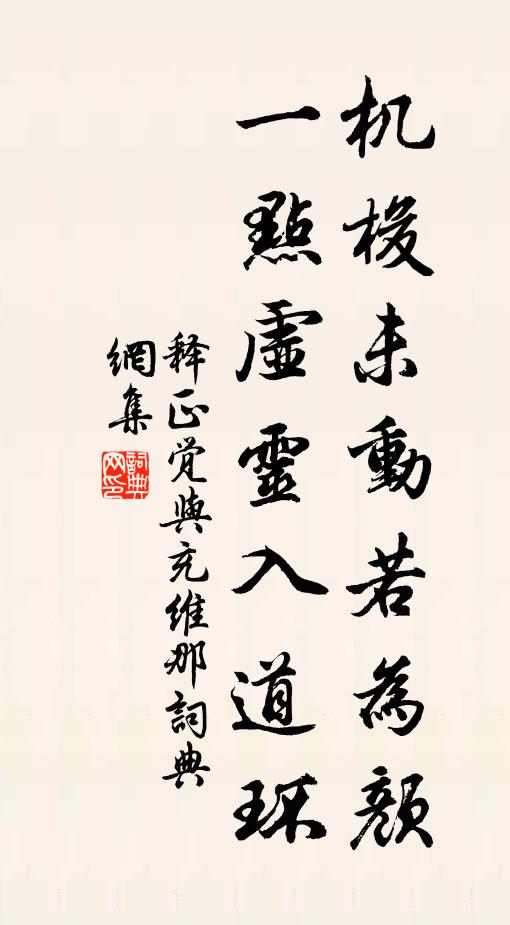 机梭未動若為顏
一點虛靈入道环
释正觉與充維那詞典
網集
詞典
网印